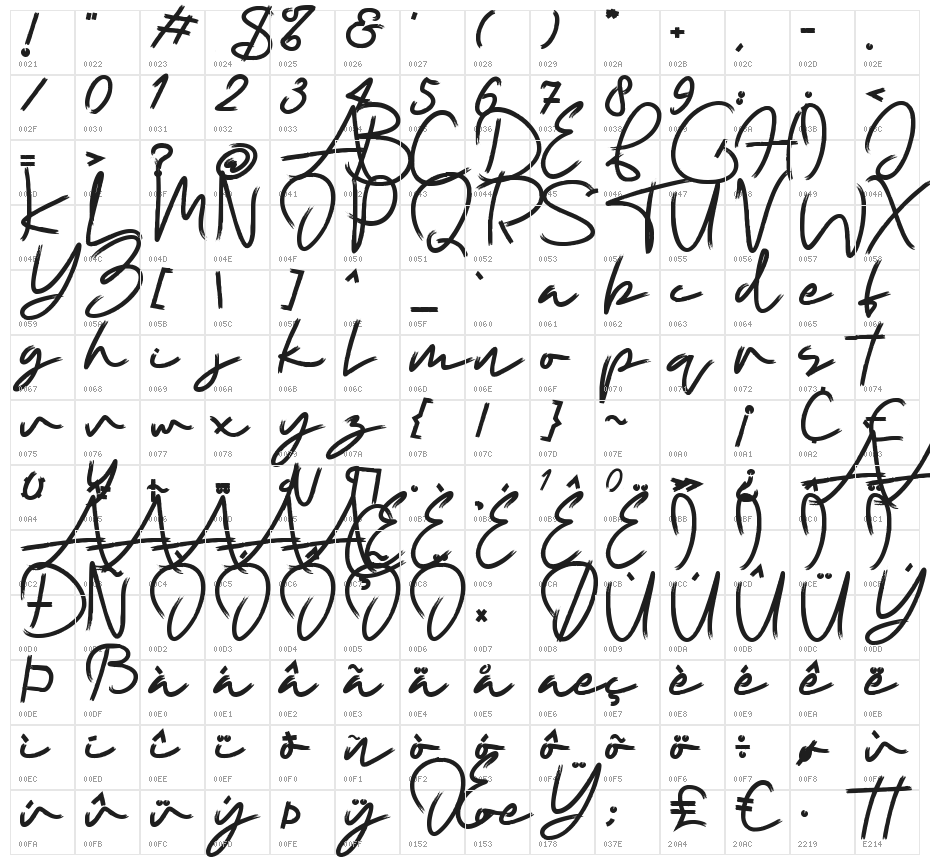 ! " # $ % & ' ( ) * + , - .
0021 0022 0023 0024 0025 0026 0027 0028 0029 002A 002B 002C 002D 002E
/ 0 1 2 3 4 5 6 7 8 9 : ; <
002F 0030 0031 0032 0033 0034 0035 0036 0037 0038 0039 003A 003B 003C
= > ? @ A B C D E F G H I J
003D 003E 003F 0040 0041 0042 0043 0044 0045 0046 0047 0048 0049 004A
K L M N O P Q R S T U V W X
004B 004C 004D 004E 004F 0050 0051 0052 0053 0054 0055 0056 0057 0058
Y Z [ \ ] ^ _ ` a b c d e f
0059 005A 005B 005C 005D 005E 005F 0060 0061 0062 0063 0064 0065 0066
g h i j k l m n o p q r s t
0067 0068 0069 006A 006B 006C 006D 006E 006F 0070 0071 0072 0073 0074
u v w x y z { | } ~ ¡ ¢ £
0075 0076 0077 0078 0079 007A 007B 007C 007D 007E 00A0 00A1 00A2 00A3
¤ ¥ · ¸ ¹ º » ¿ À Á
00A4 00A5 00B7 00B8 00B9 00BA 00BB 00BF 00C0 00C1
Â Ã Ä Å Æ Ç È É Ê Ë Ì Í Î Ï
00C2 00C3 00C4 00C5 00C6 00C7 00C8 00C9 00CA 00CB 00CC 00CD 00CE 00CF
Ð Ñ Ò Ó Ô Õ Ö × Ø Ù Ú Û Ü Ý
00D0 00D1 00D2 00D3 00D4 00D5 00D6 00D7 00D8 00D9 00DA 00DB 00DC 00DD
Þ ß à á â ã ä å æ ç è é ê ë
00DE 00DF 00E0 00E1 00E2 00E3 00E4 00E5 00E6 00E7 00E8 00E9 00EA 00EB
ì í î ï ð ñ ò ó ô õ ö ÷ ø ù
00EC 00ED 00EE 00EF 00F0 00F1 00F2 00F3 00F4 00F5 00F6 00F7 00F8 00F9
ú û ü ý þ ÿ Œ œ Ÿ ; ₤ € ∙ tt
00FA 00FB 00FC 00FD 00FE 00FF 0152 0153 0178 037E 20A4 20AC 2219 E214